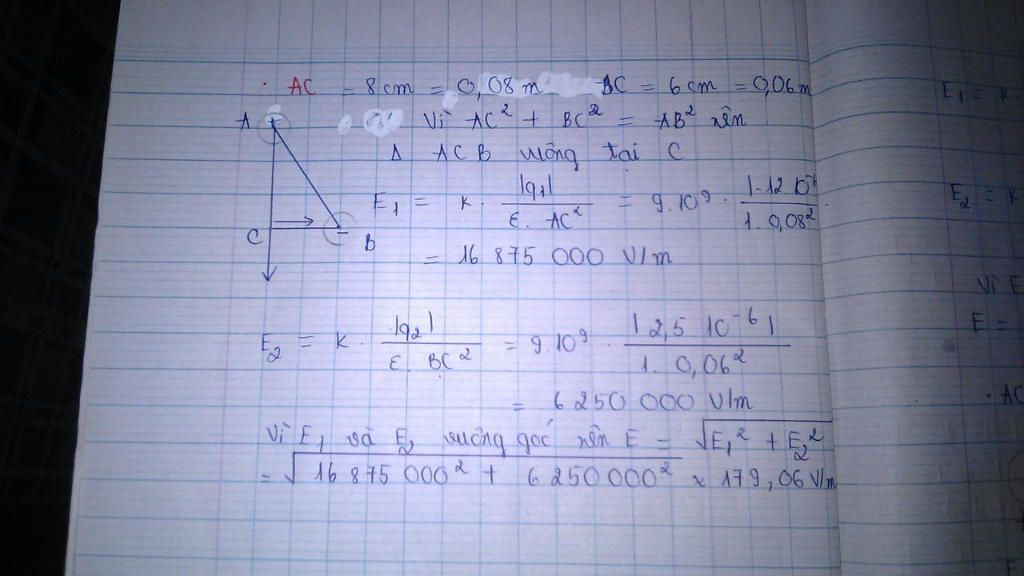 . AC = 8 cm = 0,08 m BC = 6 cm = 0,06 m
Vì AC² + BC² = AB² nên
Δ ACB vuông tại C
A
C
B
E₁ = k . |q₁| / ε. AC² = 9.10⁹ . |-12.10⁻⁶| / 1. 0,08²
= 16 875 000 V/m
E₂ = k . |q₂| / ε. BC² = 9.10⁹ . |2,5.10⁻⁶| / 1. 0,06²
= 6 250 000 V/m
Vì E₁ và E₂ vuông góc nên E = √E₁² + E₂²
= √16 875 000² + 6 250 000² ≈ 179,06 V/m
E₁ = k.
E₂ = k
Vì E
E =
. AC